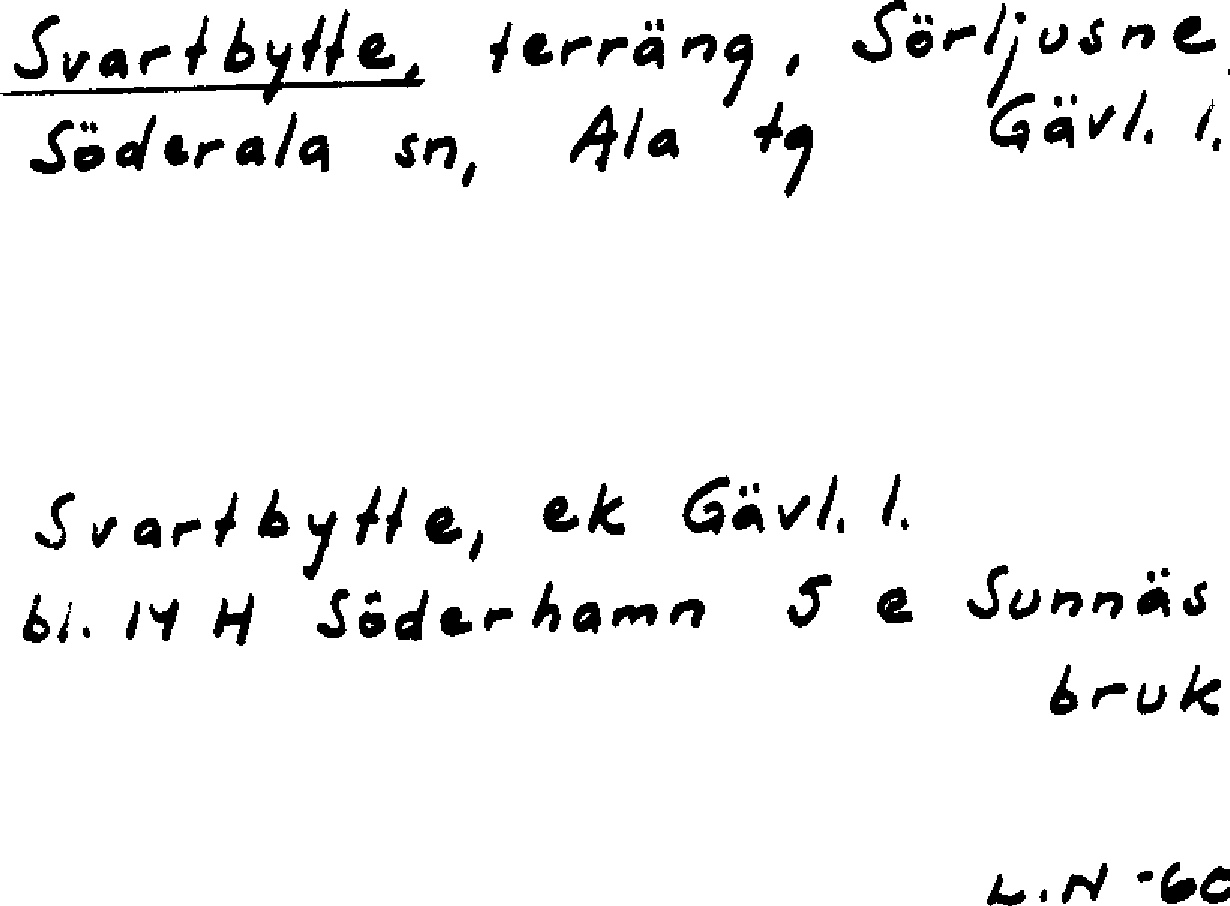 Svartbytte, terräng, Sörljusne,
Söderala sn, Ala tg Gävl. l.
Svartbytte, ek Gävl. l.
bl. 14 H Söderhamn 5 e Sunnäs
bruk
L.N -60